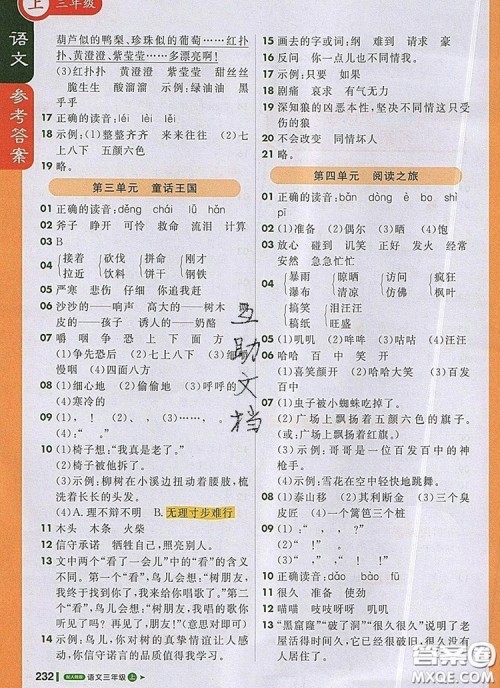 上 三年级
语文
参考答案
葫芦似的鸭梨、珍珠似的葡萄……红扑
扑、黄澄澄、紫莹莹……多漂亮啊!
(3)红扑扑 黄澄澄 紫莹莹 甜丝丝
脆生生 酸溜溜 示例:绿油油 黑
乎乎
17 正确的读音:dā liàng
18 示例:(1)整整齐齐 来来往往 (2)七
上八下 五颜六色
19 略。
第三单元 童话王国
01 正确的读音:děng chái lǚ hǎn
02 斧子 睁开 可怜 救命 流泪 计算
03 B
04 接着 砍伐 拼命 刚才
拉近 饮料 饼干 钢铁
05 严寒 悲伤 仔细 你追我赶
06 沙沙的——响声 高大的——树木 调
皮的——孩子 诱人的——奶酪
07 嚼 咽 争 恐 上 下 面 方
(1)争先恐后 (2)七上八下 (3)细嚼
慢咽 (4)四面八方
08 (1)细心地 (2)偷偷地 (3)呼呼的
(4)寒冷的
09 (1)。 (2), (3)……。
(4)“,。”
10 (1)他想:“我真是老了。”
(2)椅子被他拆了。
(3)示例:柳树在小溪边扭动着腰肢,梳
洗着长长的头发。
(4)A.理不辩不明 B.无理寸步难行
11 木头 木条 火柴
12 信守承诺 牺牲自己,照亮别人。
13 文中两个“看了一会儿”中的“看”的含
义不同。第一个“看”,鸟儿会想:“树朋
友,我终于找到你了,我来给你唱歌了。”
第二个“看”,鸟儿会想:“树朋友,我唱的
歌你听见了吗?再见了!我的朋友!”
14 示例:鸟儿,你对树的真挚情谊让人感
动,你信守诺言的精神值得我学习。
232 配人教版 语文三年级 上
15 画去的字:何 或 到 难 请求 豪
16 反问 你一点儿也不同情我。
17 示例:只要 如果
18 剧痛 哀求 有气无力
19 深知狼的凶恶本性,坚决不同情这只受
伤的狼。
20 不会改变 同情坏人
21 略。
第四单元 阅读之旅
01 正确的读音:bān dòng è bo shì
pī
02 (1)准备 (2)偶尔 (3)晒 (4)饱
03 放心 碰到 讥笑 正好 发出 经常
安然 急急忙忙
04 暴雨 晾晒 访问 疯狂
暴露 清凉 仿佛 枫叶
搞笑 泪汪汪
搞糕 旺盛
05 (1)叽叽 (2)哞哞 (3)咕咕 (4)汪汪
06 哈哈 百 笑 开 笑
(1)喜笑颜开 (2)哈哈大笑
07 (1)虫子被小蜘蛛吃掉了。
(2)广场上飘扬着五颜六色的旗子。
(或:广场上飘扬着红旗。)
(3)示例:哥哥是一位百发百中的神
射手。
(4)示例:雪花在空中轻快地跳舞。
08 (1)泰山移 (2)其利断金 (3)三个臭皮
匠 (4)一个篱笆三个桩
10 正确读音:dǎo bào fù
11 很久 准备 使劲
12 喵喵 吱吱吱吱 叽叽叽
13 “黑窟窿”“破了洞”“很久很久”说明了老
屋活得时间很久,它已经非常破旧了,
互助文档